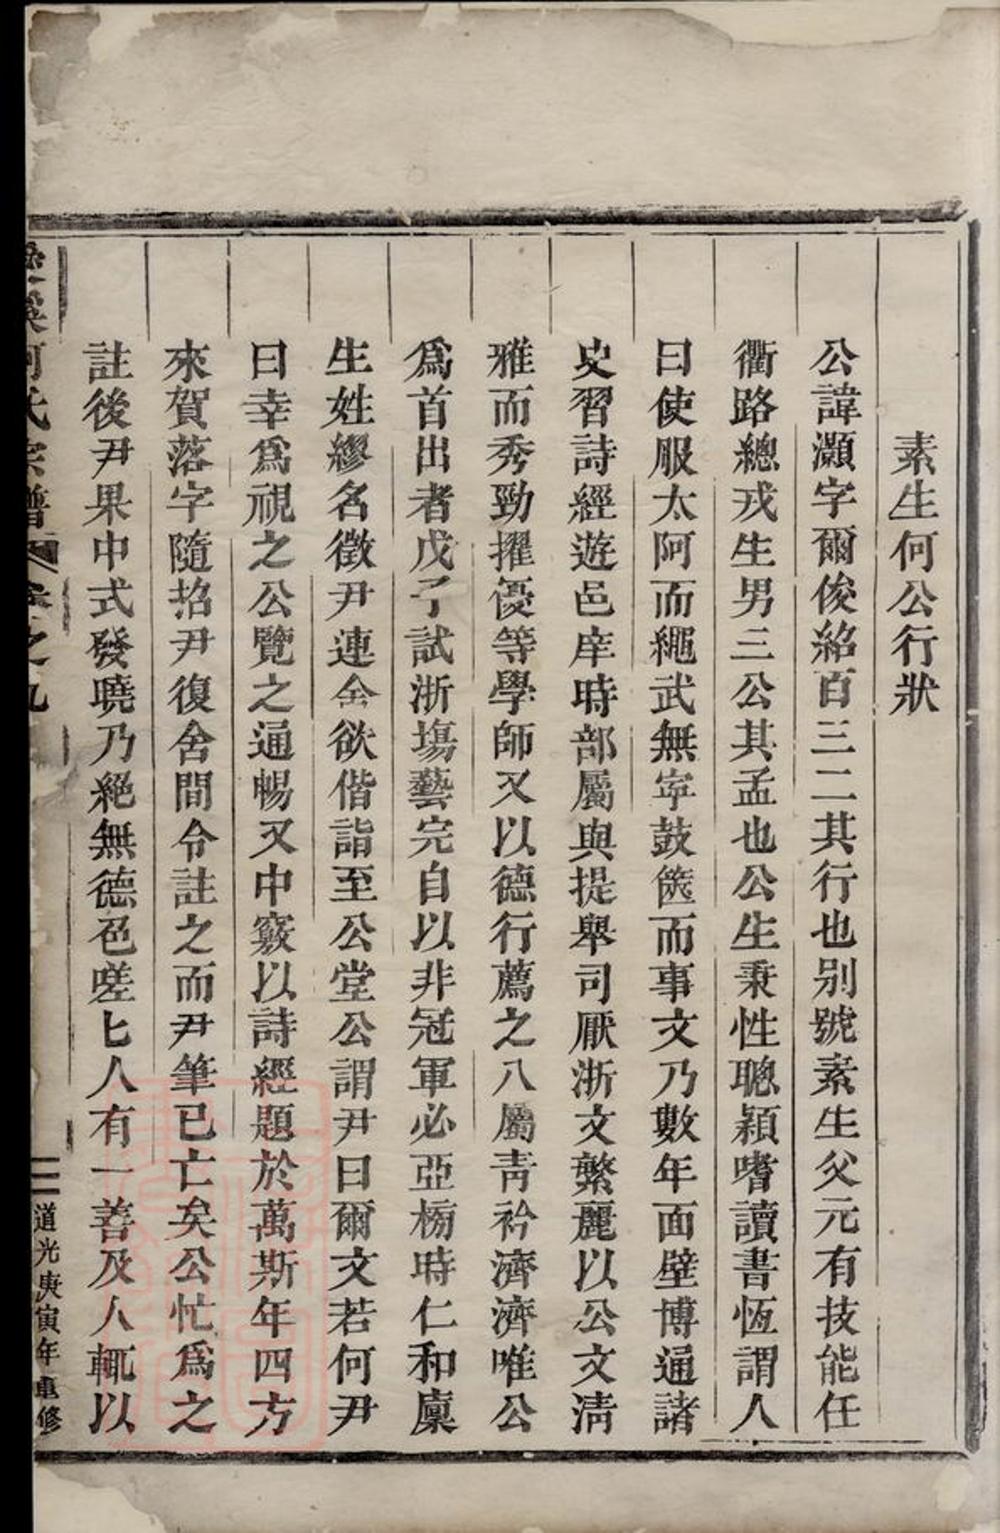 素生何公行狀
公諱灝字爾俊紹百三二其行也别號素生父元有技能任
衢路總戎生男三公其孟也公生秉性聰穎嗜讀書恆謂人
曰使服太阿而繩武無寧鼓篋而事文乃數年面壁博通諸
史習詩經遊邑庠時部屬與提舉司厭浙文繁麗以公文淸
雅而秀勁擢優等學師又以德行薦之八屬靑衿濟濟唯公
爲首出者戊子試浙塲藝完自以非冠軍必亞榜時仁和廩
生姓繆名徵尹連舍欲偕詣至公堂公謂尹曰爾文若何尹
曰幸爲視之公覽之通暢又中竅以詩經題於萬斯年四方
來賀落字隨招尹復舍間令註之而尹筆已亡矣公忙爲之
註後尹果中式發曉乃絕無德色嗟匕人有一善及人輒以
何氏宗譜 卷之九
二
道光庚寅年重修